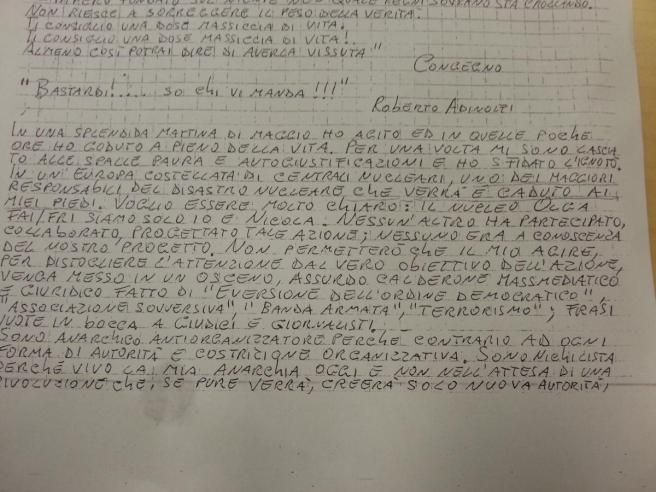 IMPERO FONDATO SUL NIENTE
NON RIESCE A SORREGGERE IL PESO DELLA VERITÀ.
TI CONSIGLIO UNA DOSE MASSICCIA DI VITA.
TI CONSIGLIO UNA DOSE MASSICCIA DI VITA!..
ALMENO COSÌ POTRAI DIRE DI AVERLA VISSUTA"
CONGEGNO
"BASTARDI!.... SO CHI VI MANDA!!!"
ROBERTO ADINOLFI
IN UNA SPLENDIDA MATTINA DI MAGGIO HO AGITO ED IN QUELLE POCHE
ORE HO GODUTO A PIENO DELLA VITA. PER UNA VOLTA MI SONO LASCIA
TO ALLE SPALLE PAURA E AUTOGIUSTIFICAZIONI E HO SFIDATO L'IGNOTO.
IN UN'EUROPA COSTELLATA DI CENTRALI NUCLEARI, UNO DEI MAGGIORI
RESPONSABILI DEL DISASTRO NUCLEARE CHE VERRÀ È CADUTO AI
MIEI PIEDI. VOGLIO ESSERE MOLTO CHIARO: IL NUCLEO OLGA
FAI/FRI SIAMO SOLO IO E NICOLA. NESSUN'ALTRO HA PARTECIPATO,
COLLABORATO, PROGETTATO TALE AZIONE; NESSUNO ERA A CONOSCENZA
DEL NOSTRO PROGETTO. NON PERMETTERÒ CHE IL MIO AGIRE,
PER DISTOGLIERE L'ATTENZIONE DAL VERO OBIETTIVO DELL'AZIONE,
VENGA MESSO IN UN OSCENO, ASSURDO CALDERONE MASSMEDIATICO
E GIURIDICO FATTO DI "EVERSIONE DELL'ORDINE DEMOCRATICO",
"ASSOCIAZIONE SOVVERSIVA", "BANDA ARMATA", "TERRORISMO"; FRASI
VUOTE IN BOCCA A GIUDICI E GIORNALISTI.
SONO ANARCHICO ANTIORGANIZZATORE PERCHÉ CONTRARIO AD OGNI
FORMA DI AUTORITÀ E COSTRIZIONE ORGANIZZATIVA. SONO NICHILISTA
PERCHÉ VIVO LA MIA ANARCHIA OGGI E NON NELL'ATTESA DI UNA
RIVOLUZIONE CHE, SE PURE VERRÀ, CREERÀ SOLO NUOVA AUTORITÀ,